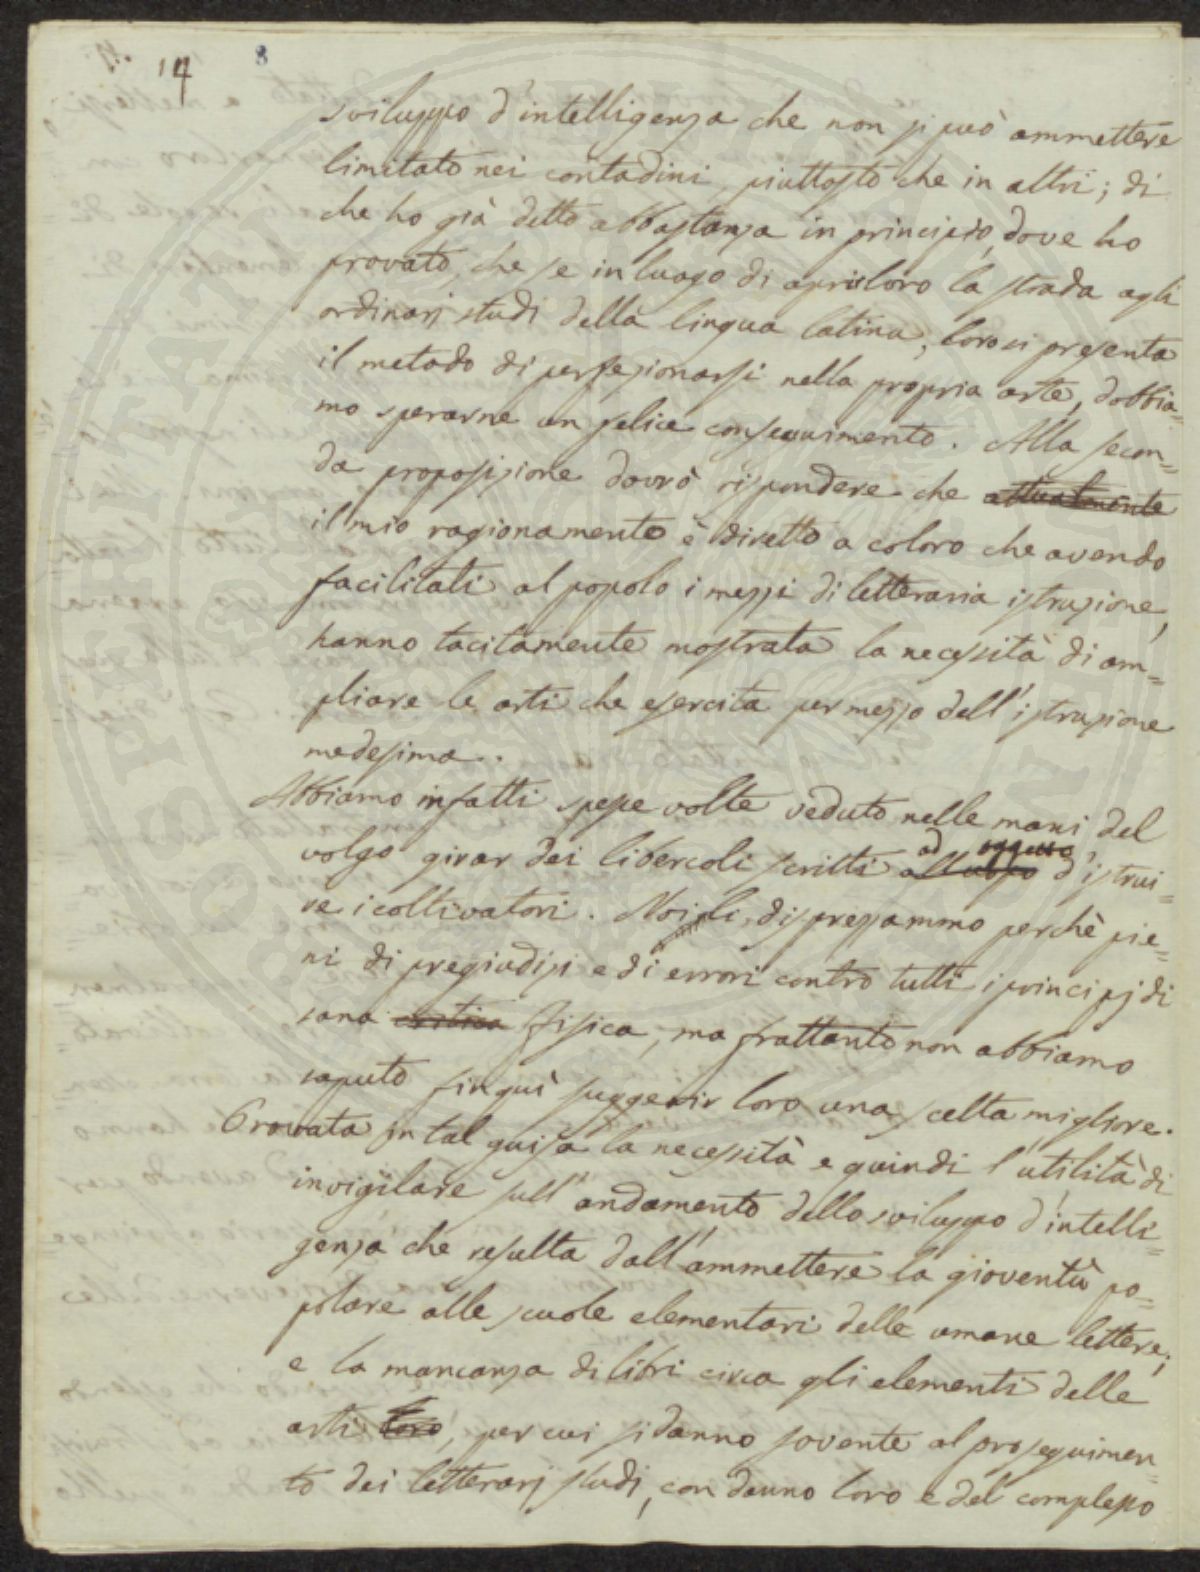 14 8
sviluppo d'intelligenza che non si può ammettere
limitato nei contadini, piuttosto che in altri; di
che ho già detto abbastanza in principio, dove ho
provato, che se in luogo di aprir loro la strada agli
ordinarj studi della lingua latina, loro si presenta
il metodo di perfezionarsi nella propria arte, dobbia=
mo sperarne un felice conseguimento. Alla secon=
da proposizione dovrò rispondere che attualmente
il mio ragionamento è diretto a coloro che avendo
facilitati al popolo i mezzi di letteraria istruzione,
hanno tacitamente mostrata la necessità di am=
pliare le arti che esercita per mezzo dell'istruzione
medesima.
Abbiamo infatti spesse volte veduto nelle mani del
volgo girar dei libercoli scritti all'uopo ad oggetto d'istrui=
re i coltivatori. Noi gli disprezzammo perchè pie=
ni di pregiudizi e di errori contro tutti i principj di
sana critica fisica, ma frattanto non abbiamo
saputo finquì suggerir loro una scelta migliore.
Provata in tal guisa la necessità e quindi l'utilità di
invigilare sull'andamento dello sviluppo d'intelli=
genza che resulta dall'ammettere la gioventù po=
polare alle scuole elementari delle umane lettere;
e la mancanza di libri circa gli elementi delle
arti loro, per cui si danno sovente al proseguimen=
to dei letterarj studi, con danno loro e del complesso